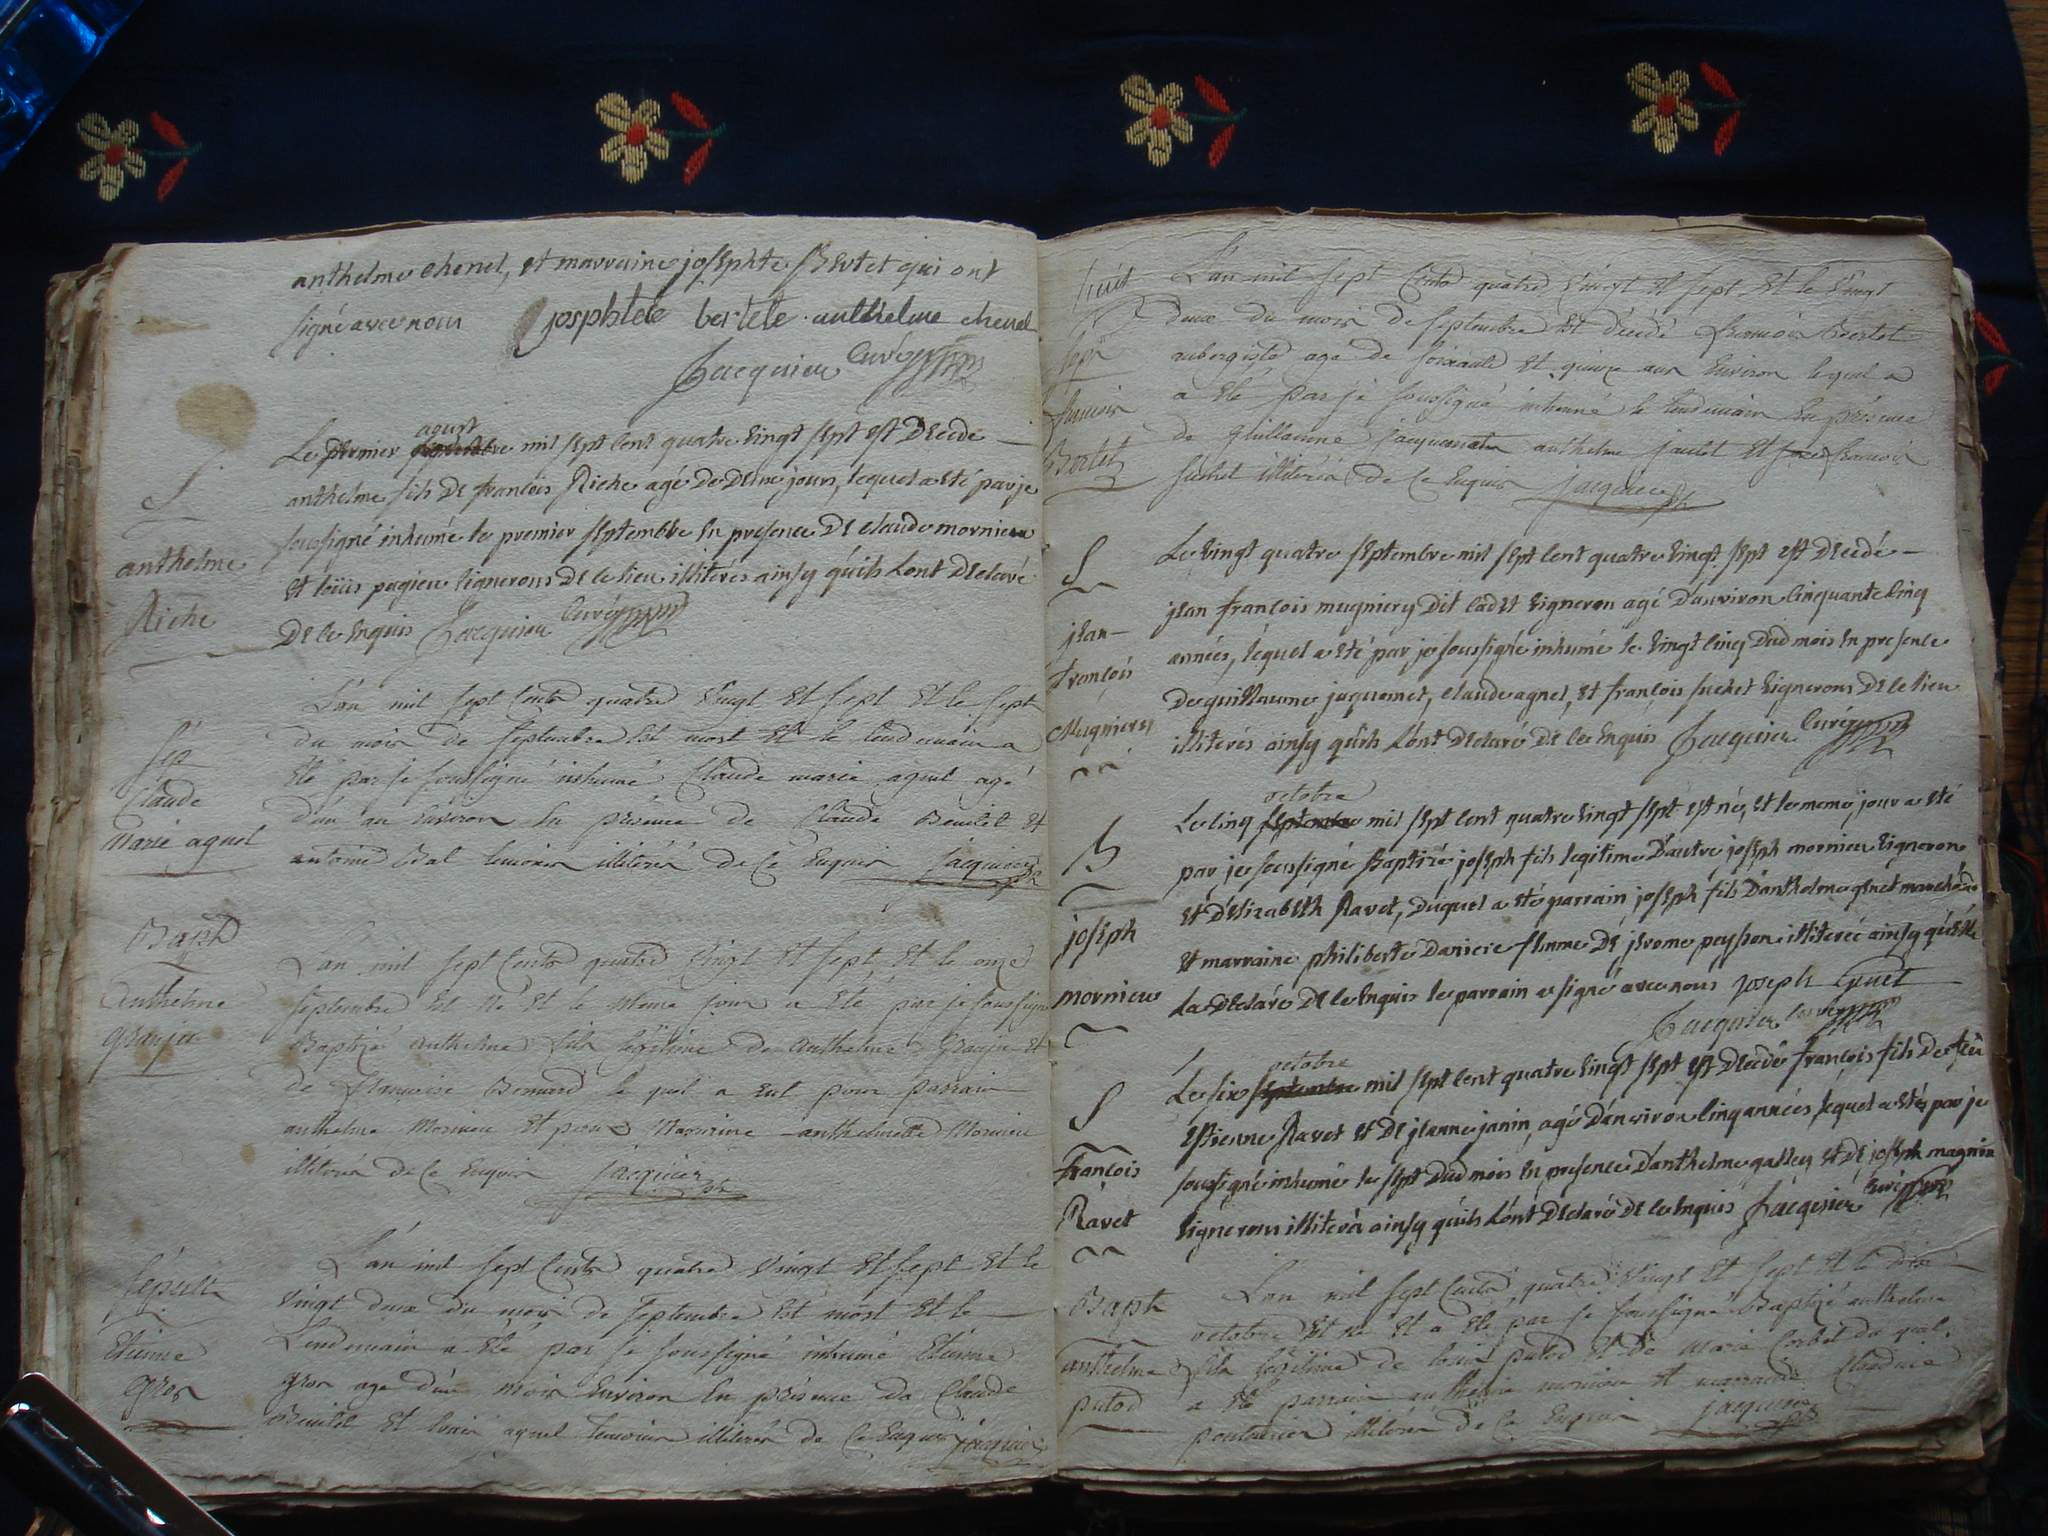 anthelme chenel, et marraine josephte Bertet qui ont
signé avec nous josphtete bertete . anthelme chenel
Jacquier curé
S
anthelme
Riche
aoust
Le premier septembre mil sept cent quatre vingt sept est decedé
anthelme fils de françois Riche agé de deme jours, lequel a eté par je
soussigné inhumé le premier septembre en presence de claude mornieu
et loüis pagieu vignerons de ce lieu illiterés ainsy qúils l'ont declaré
de ce enquis Jacquier curé
Sep
Claude
Marie agnel
L'an mil sept cents quatre vingt et sept et le sept
du mois de septembre est mort et le lendemain a
eté par je soussigné inhumé Claude marie agnel agé
d'un an environ en présence de Claude Beuilet et
antoine Bal temoins illiterés de ce enquis jacquier
Bapt
Anthelme
Granju
L'an mil sept cents quatre vingt et sept, et le onze
septembre est né et le meme jour a eté par je soussigné
Baptizé anthelme fils legitime de anthelme Granju et
de françoise Bernard le quel a eut pour parrain
anthelme Mornieu et pour Marraine anthelmette Mornieu
illiterés de ce enquis jacquier
Sépult
Etienne
gros
L'an mil sept cents quatre vingt et sept et le
vingt deux du mois de septembre est mort et le
Lendemain a eté par je soussigné inhumé Etienne
gros age d'un mois environ en présence de Claude
Beuilet et louis agnel temoins illiterés de ce enquis jacquier
Sepr
françois
Bertet
L'an mil sept cents quatre vingt et sept et le vingt
deux du mois de septembre est décédé françois Bertet
aubergiste age de soixante et quinze ans environ le quel a
a eté par je soussigné inhumé le lendemain en présence
de guillaume jacquemet anthelme jaulet et françois
suchet illiterés de ce enquis jacquier
S
jean-
françois
Mugniery
Le vingt quatre septembre mil sept cent quatre vingt sept est decedé
jean françois mugniery dit cadet vigneron agé d'environ cinquante cinq
années, lequel a eté par je soussigné inhumé le vingt cinq dud mois en présence
de guillaume jaquemet, claude agnel, et françois suchet vignerons de ce lieu
illiterés ainsy qúils l'ont declaré de ce enquis Jacquier curé
B
joseph
mornieu
octobre
Le cinq septembre mil sept cent quatre vingt sept est né, et le meme jour a eté
par je soussigné Baptizé joseph fils legitime d'autre joseph mornieu vigneron
et d'elizabeth Ravet, duquel a eté parrain joseph fils d'anthelme genet marchand
et marraine philiberte daricie femme de jerome peysson illiterée ainsy qúelle
la declaré de ce enquis le parrain a signé avec nous joseph Genet
Jacquier curé
S
françois
Ravet
octobre
Le six septembre mil sept cent quatre vingt sept est decedé françois fils de feu
estienne Ravet et de jeanne janin, agé d'environ cinq années, lequel a eté par je
soussigné inhumé le sept dud mois en presence d'anthelme galley et de joseph magnin
vignerons illiterés ainsy qúils l'ont declaré de ce enquis Jacquier curé
Bapt
anthelme
putod
L'an mil sept cents quatre vingt et sept et le dix
octobre est né et a eté par je soussigné Baptizé anthelme
fils legitime de louis putod et de Marie Corbet du quel
a eté parrain anthelme mornieu et marraine Claudine
illiterés de ce enquis jacquier